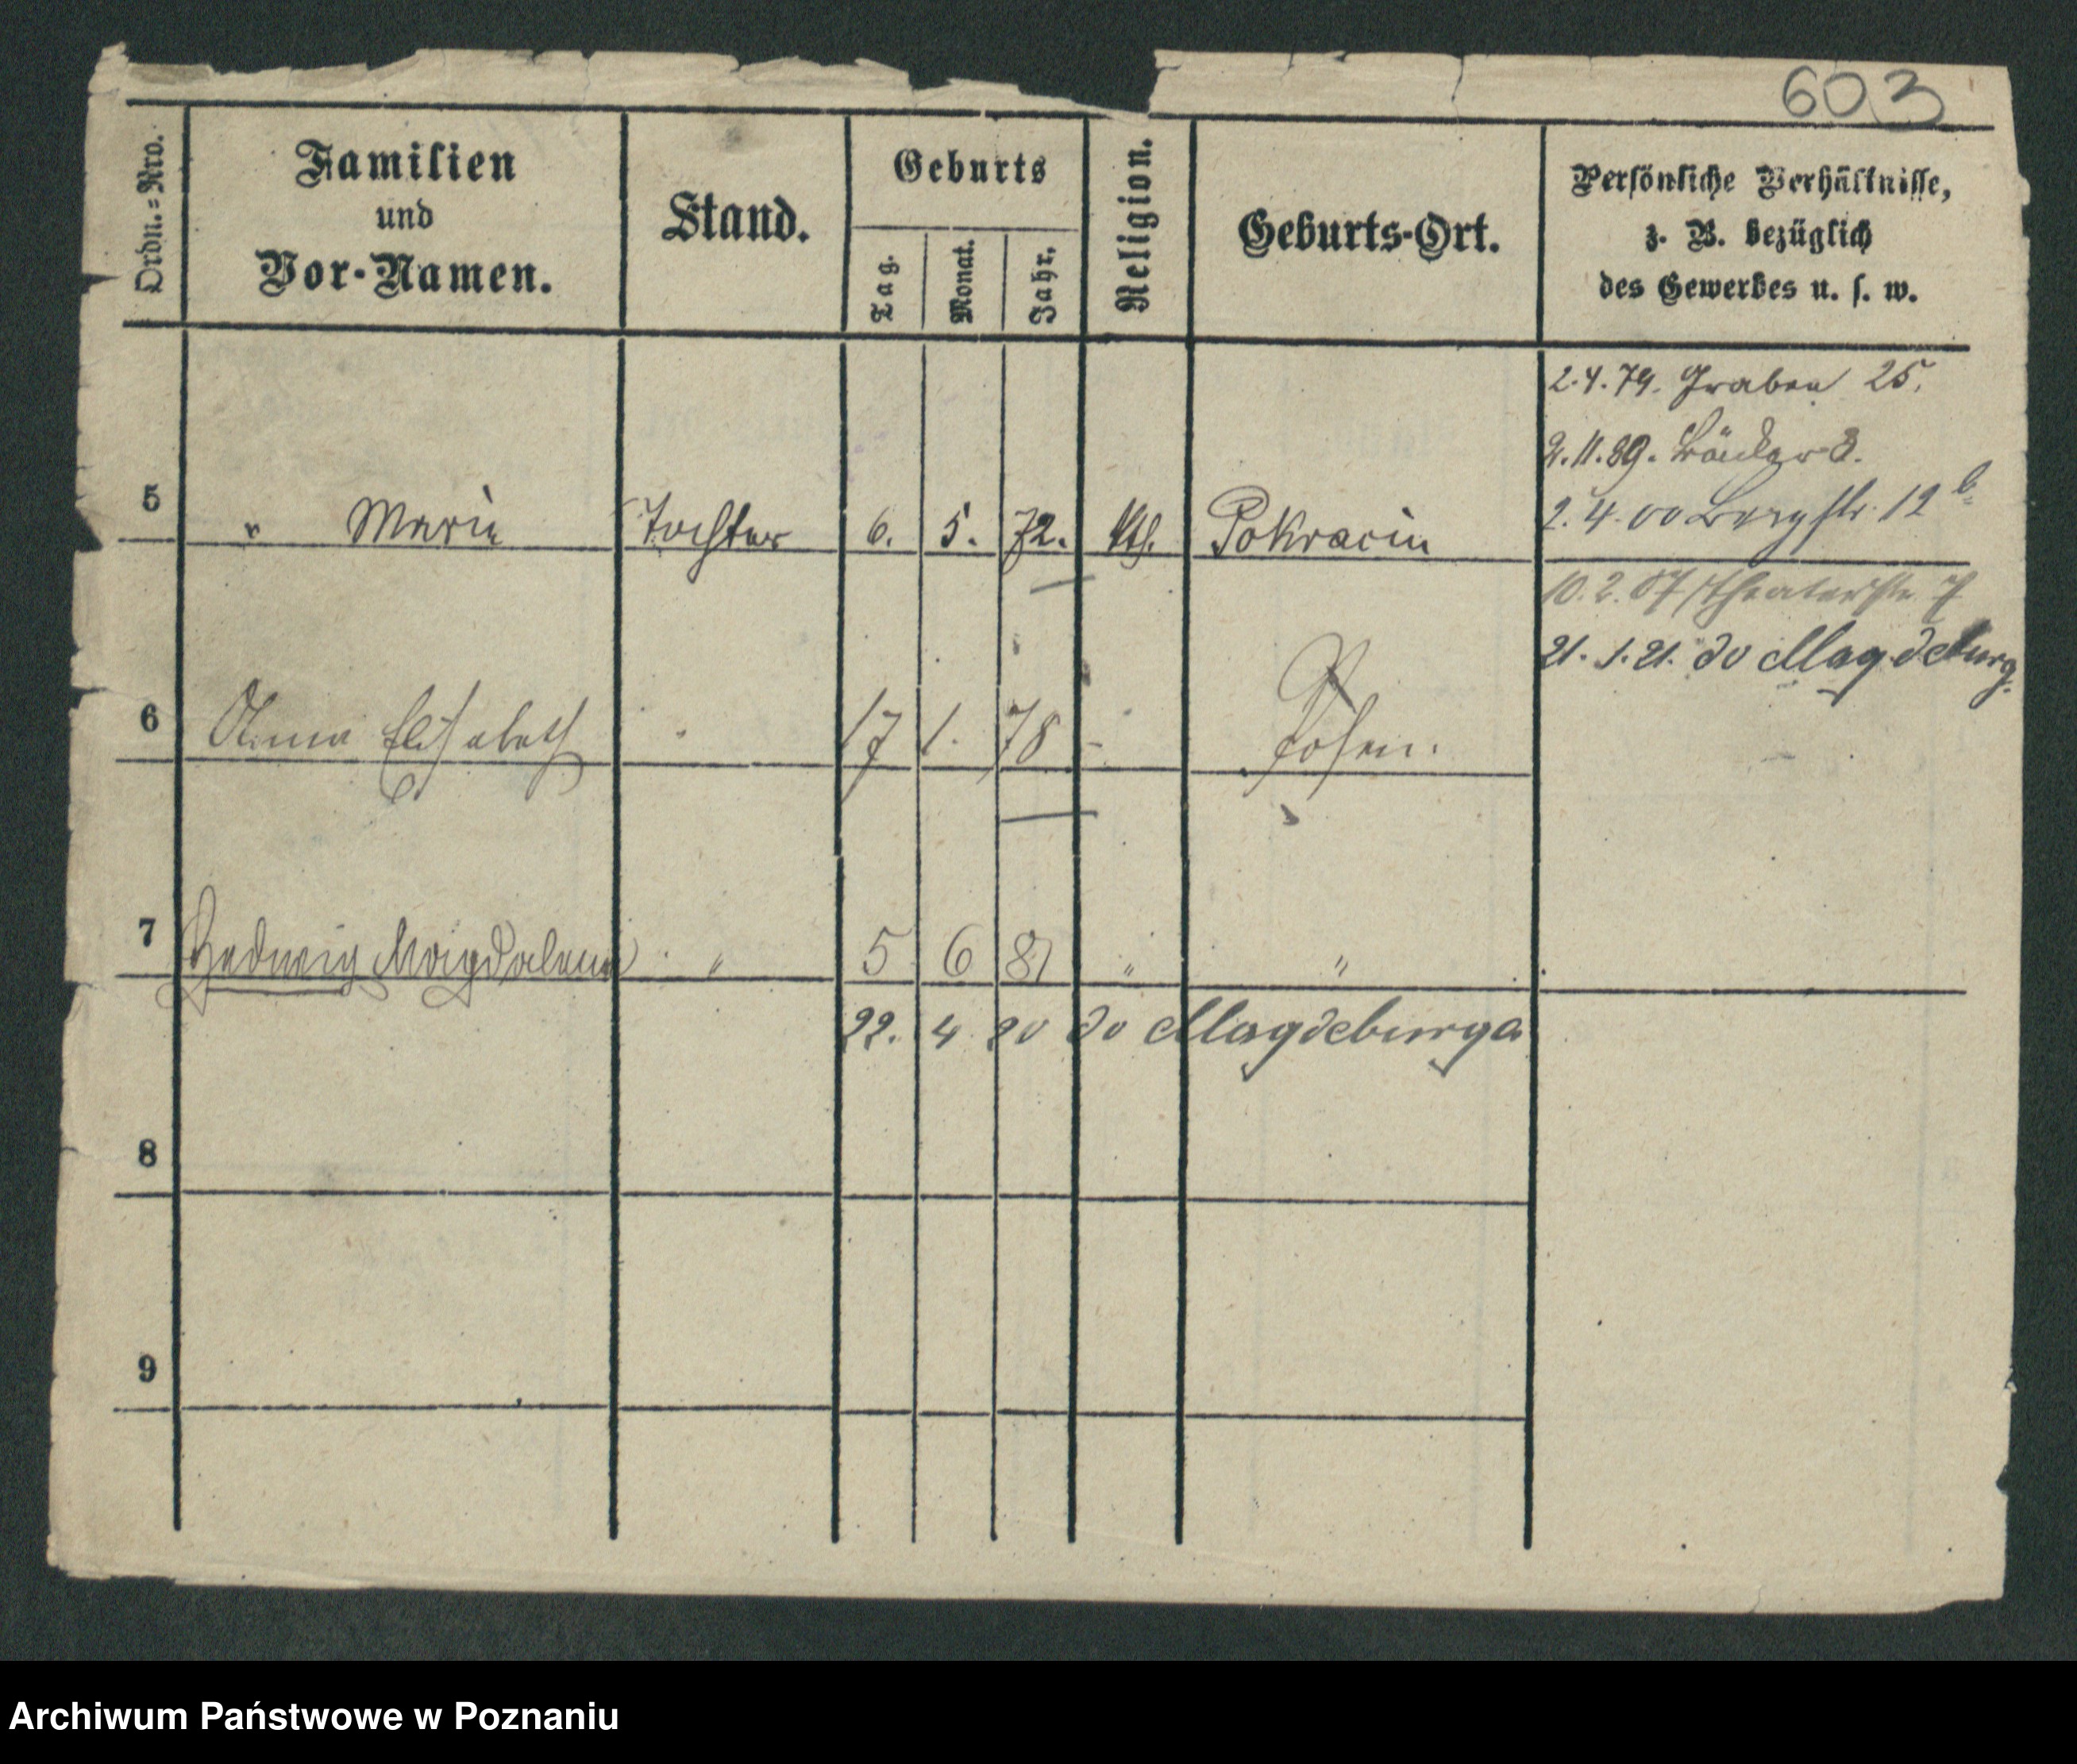 603
Ordn.=Nro.
Familien
und
Vor-Namen.
Stand.
Geburts
Tag.
Monat.
Jahr.
Religion.
Geburts-Ort.
Persönliche Verhältnisse,
z. B. bezüglich
des Gewerbes u. s. w.
2.4.79. Graben 25.
2.11.89. Bäcker 3.
2.4.00 Bergstr. 12 b
5 " Marie Tochter 6. 5. 72. kth. Pokracin
10.2.07 Theaterstr. 7
21.1.21. do Magdeburg.
6 Anna Elisabeth " 17 1. 78 - Posen.
7 Hedwig Magdalena " 5 6 81 " "
22. 4 20 do Magdeburga
8
9
Archiwum Państwowe w Poznaniu